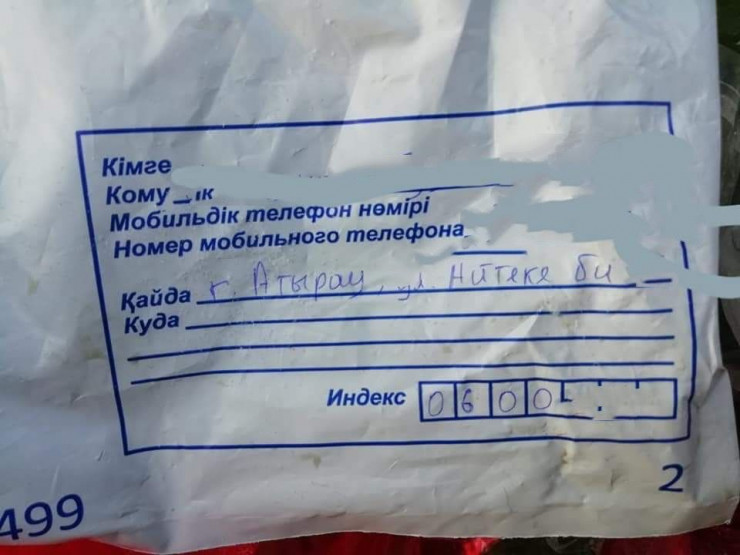 Кімге
Кому
Мобильдік телефон нөмірі
Номер мобильного телефона
Қайда г. Атырау, ул. Айтеке би
Куда
Индекс 0600
2
499